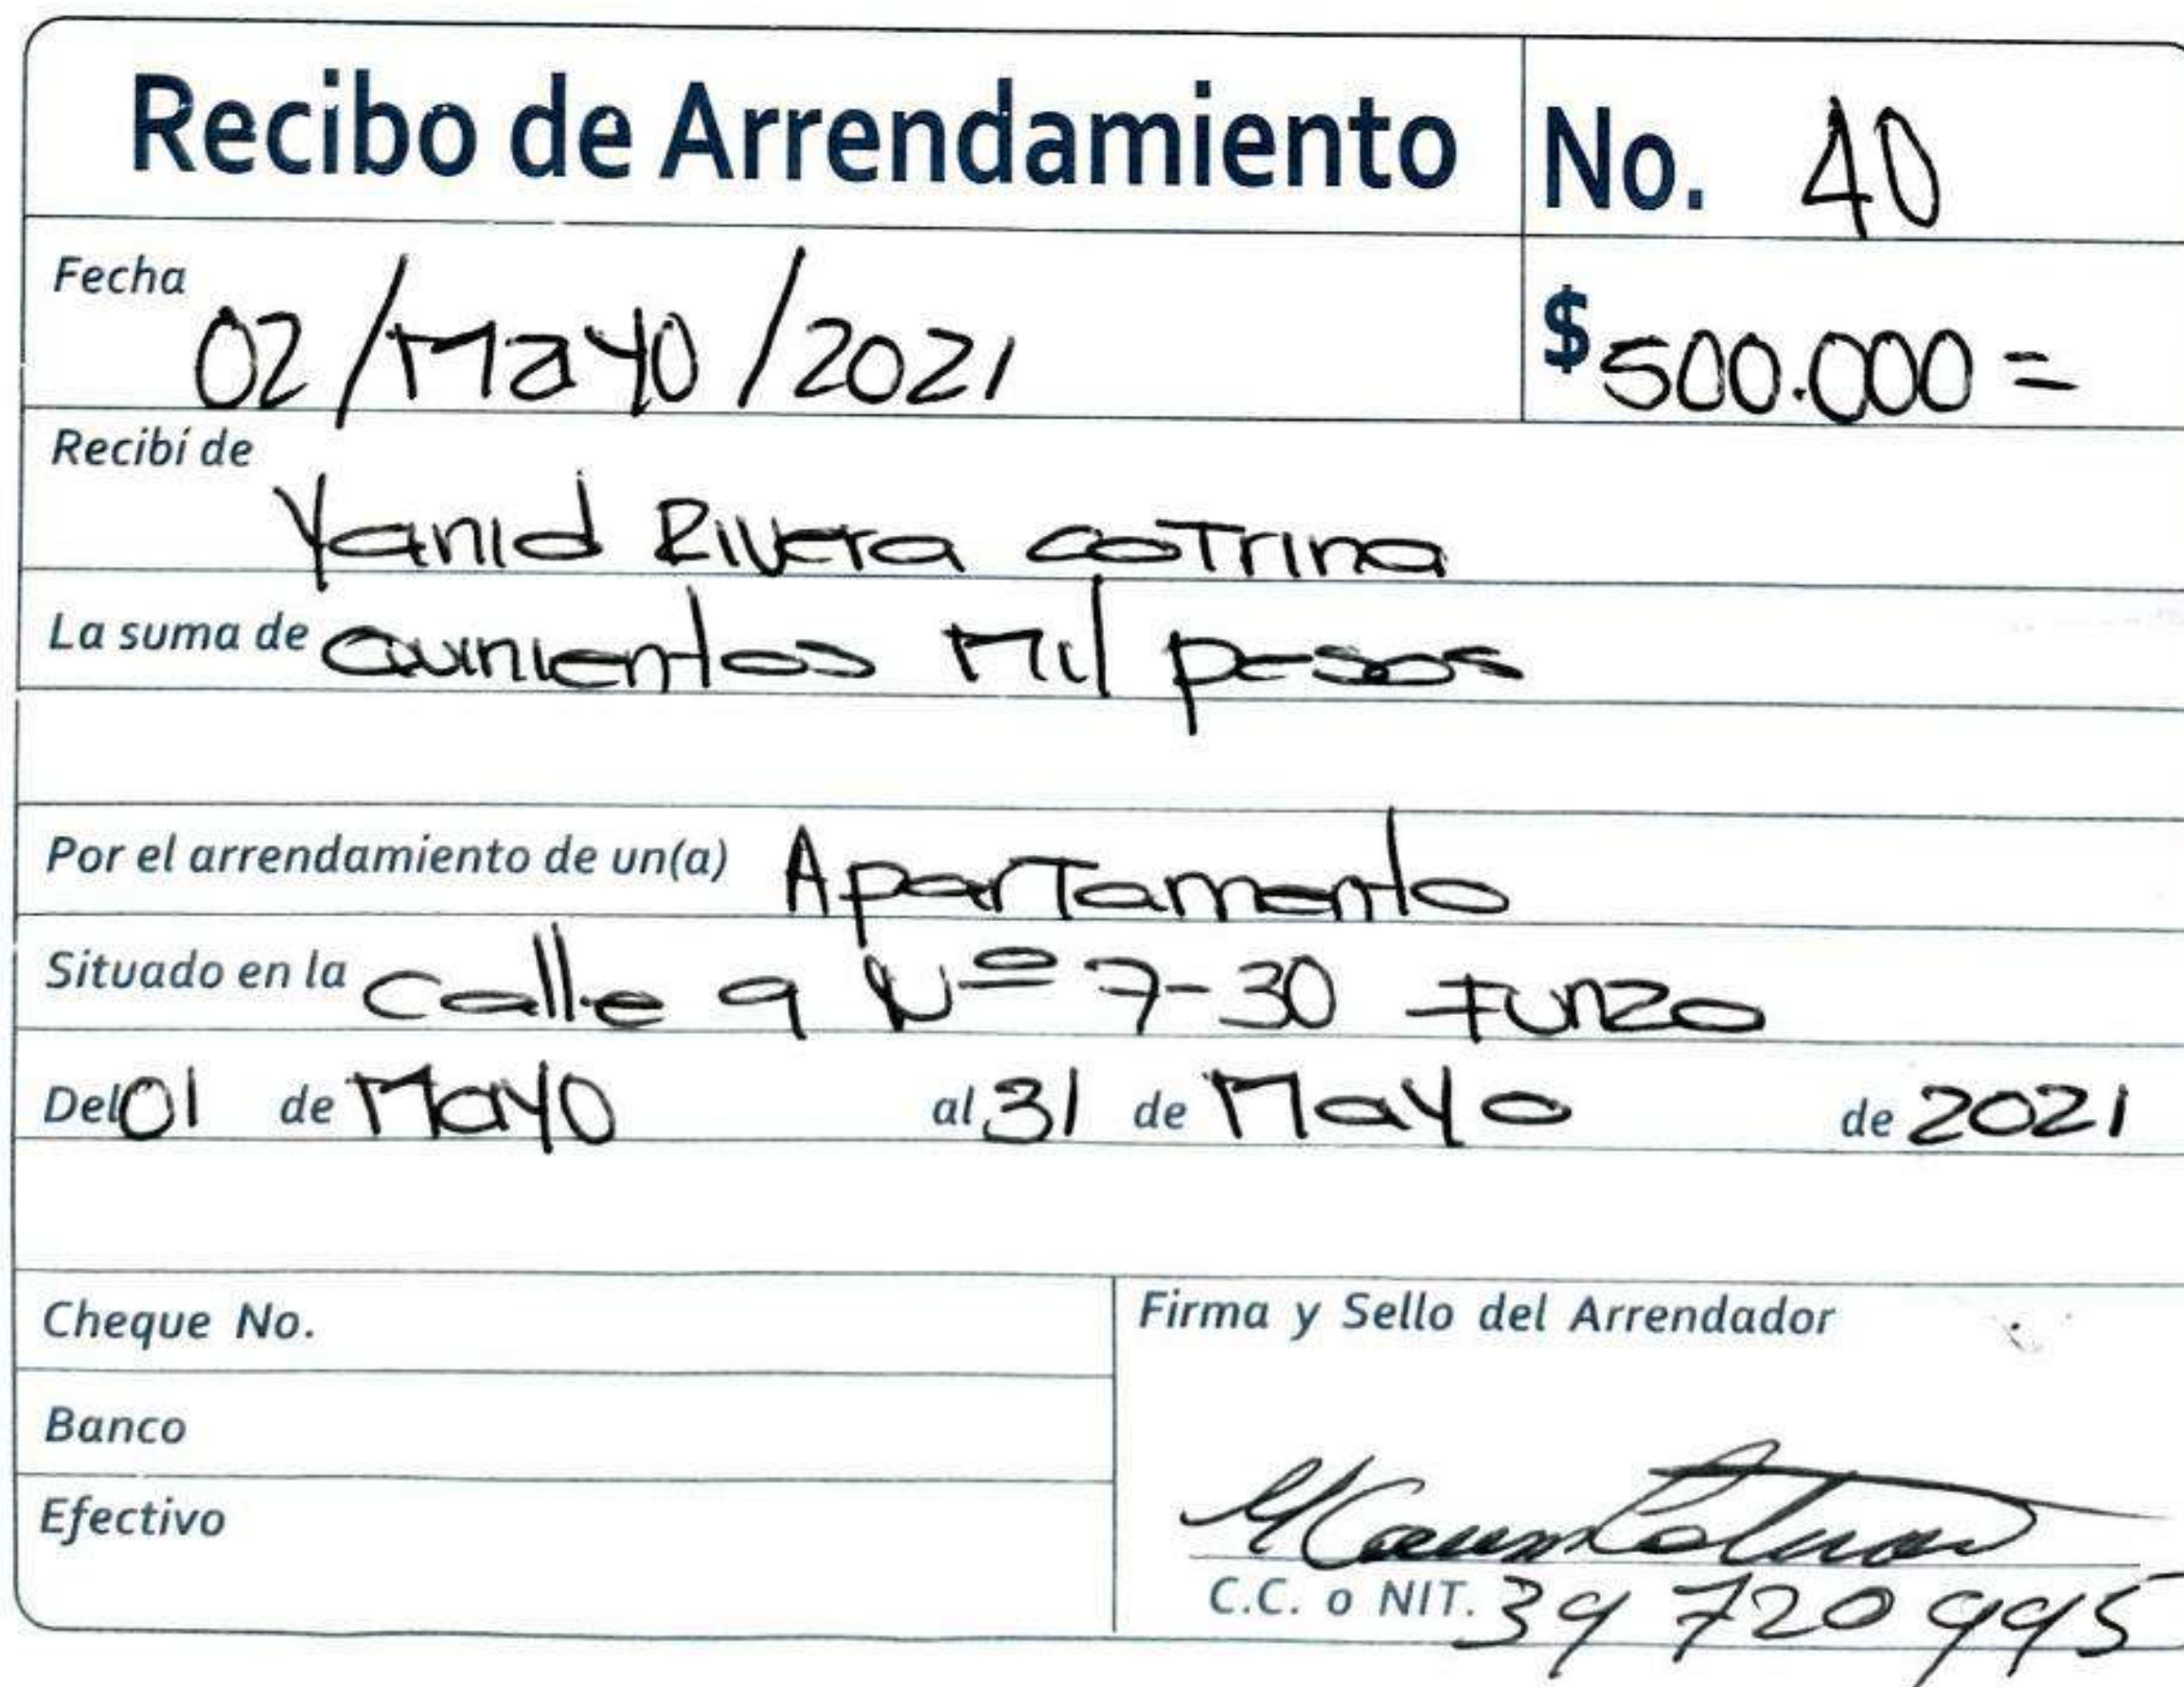 Recibo de Arrendamiento No. 40
Fecha 02/Mayo/2021 $500.000=
Recibí de Yanid Rivera coTrina
La suma de Quinientos Mil pesos
Por el arrendamiento de un(a) AparTamento
Situado en la calle 9 Nº 7-30 Funza
Del 01 de Mayo al 31 de Mayo de 2021
Cheque No.
Firma y Sello del Arrendador
Banco
Efectivo
C.C. o NIT. 39 720 995